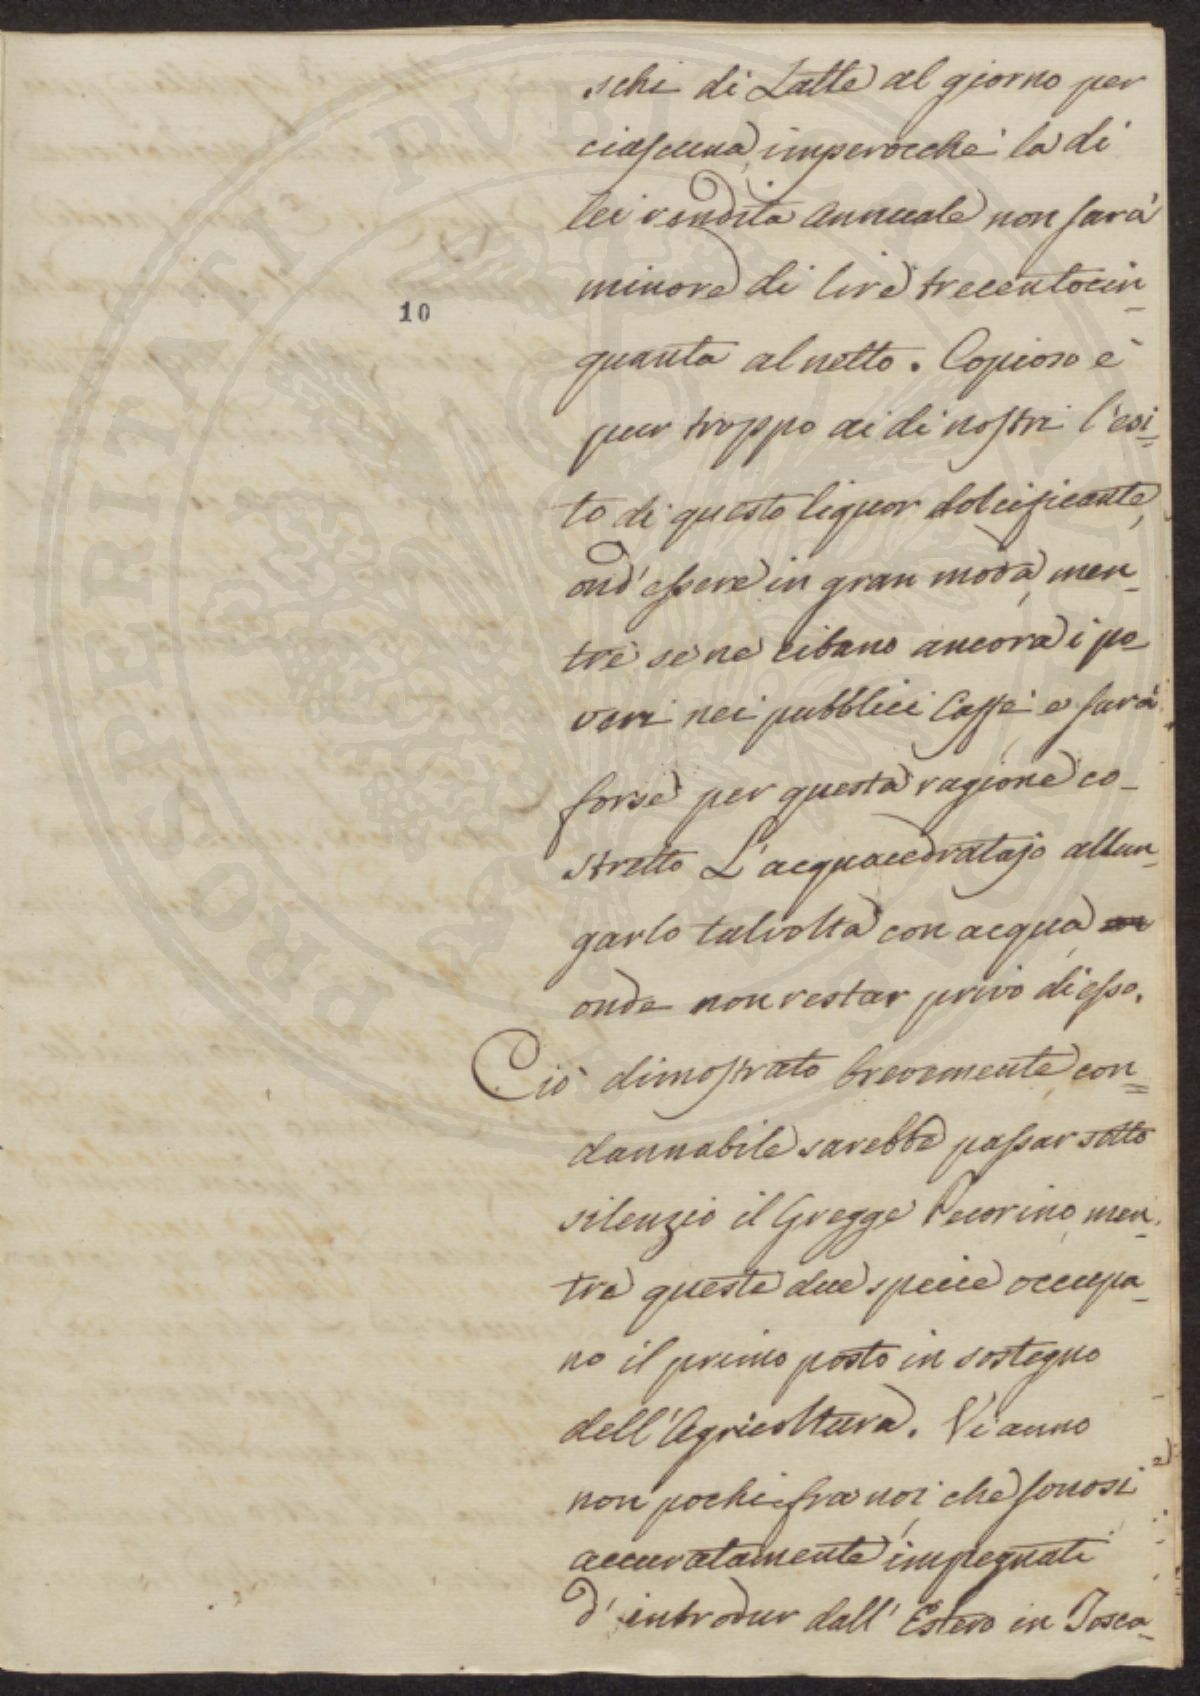 schi di Latte al giorno per
ciascuna, imperocchè la di
lei rendita annuale non sarà
minore di lire trecentocin-
10
quanta al netto. Copioso è
pur troppo ai dì nostri l'esi=
to di questo liquor dolcificante,
ond'essere in gran moda, men=
tre se ne cibano ancora i po
veri nei pubblici Caffè, e sarà
forse per questa ragione co-
stretto L'acquacedratajo allun=
garlo talvolta con acqua
onde non restar privo di esso.
Ciò dimostrato brevemente, con=
dannabile sarebbe passar sotto
silenzio il Gregge Pecorino, men=
tre queste due specie occupa-
no il primo posto in sostegno
dell'Agricoltura. Vi anno
non pochi fra noi, che sonosi
accuratamente impegnati
d'introdur dall'Estero in Tosca=
PROSPERITATI PUBLICAE